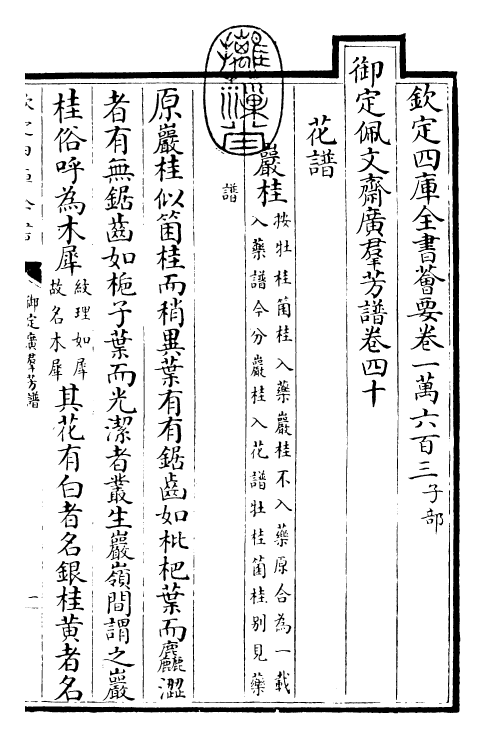 欽定四庫全書薈要卷一萬六百三子部
御定佩文齋廣羣芳譜卷四十
花譜
巖桂按牡桂箘桂入藥巖桂不入藥原合為一載
入藥譜今分巖桂入花譜牡桂箘桂別見藥
譜
原巖桂似箘桂而稍異葉有有鋸齒如枇杷葉而麤澀
者有無鋸齒如梔子葉而光潔者叢生巖嶺間謂之巖
桂俗呼為木犀紋理如犀故名木犀其花有白者名銀桂黃者名
御定廣羣芳譜
一